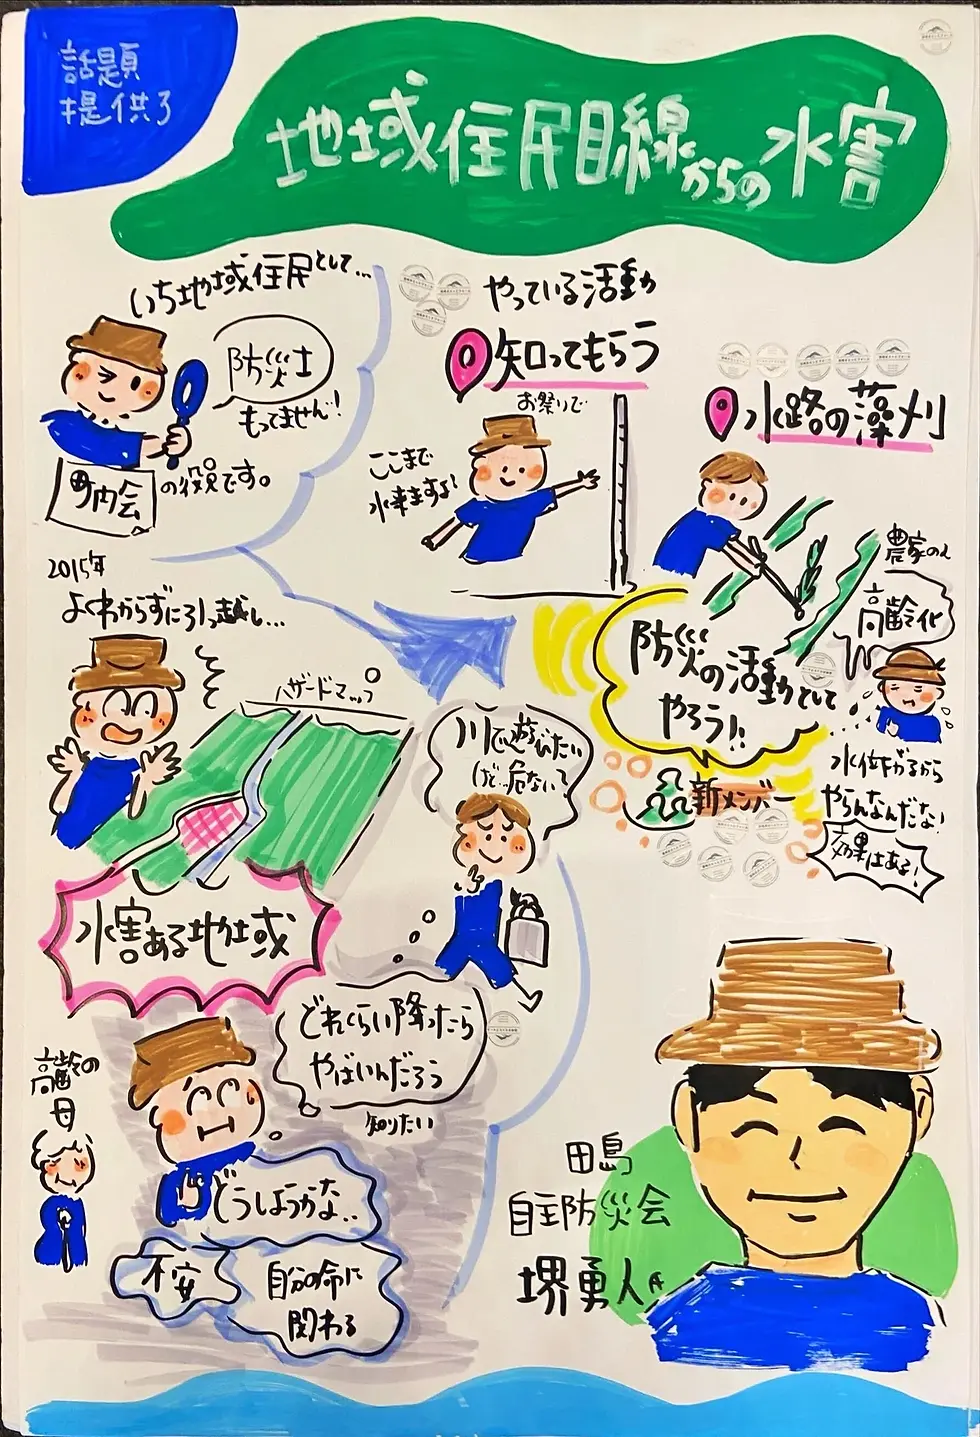 話題
提供了
地域住民目線からの水害
いち地域住民として…
防災士
もってません!
町内会の役員です。
2015年
よくわからずに引っ越し…
ハザードマップ
水害ある地域
高齢の
母
どれくらい降ったら
やばいんだろう
知りたい
どうしようかな..
不安
自分の命に
関わる
やっている活動
知ってもらう
お祭りで
ここまで
水来ますよ!
川で遊びたい
けど…危ない?
水路の藻刈り
農家の
高齢化
防災の活動として
やろう!!
新メンバー
水位下がるから
やらんなんだな!
効果はある!
田島
自主防災会
堺勇人